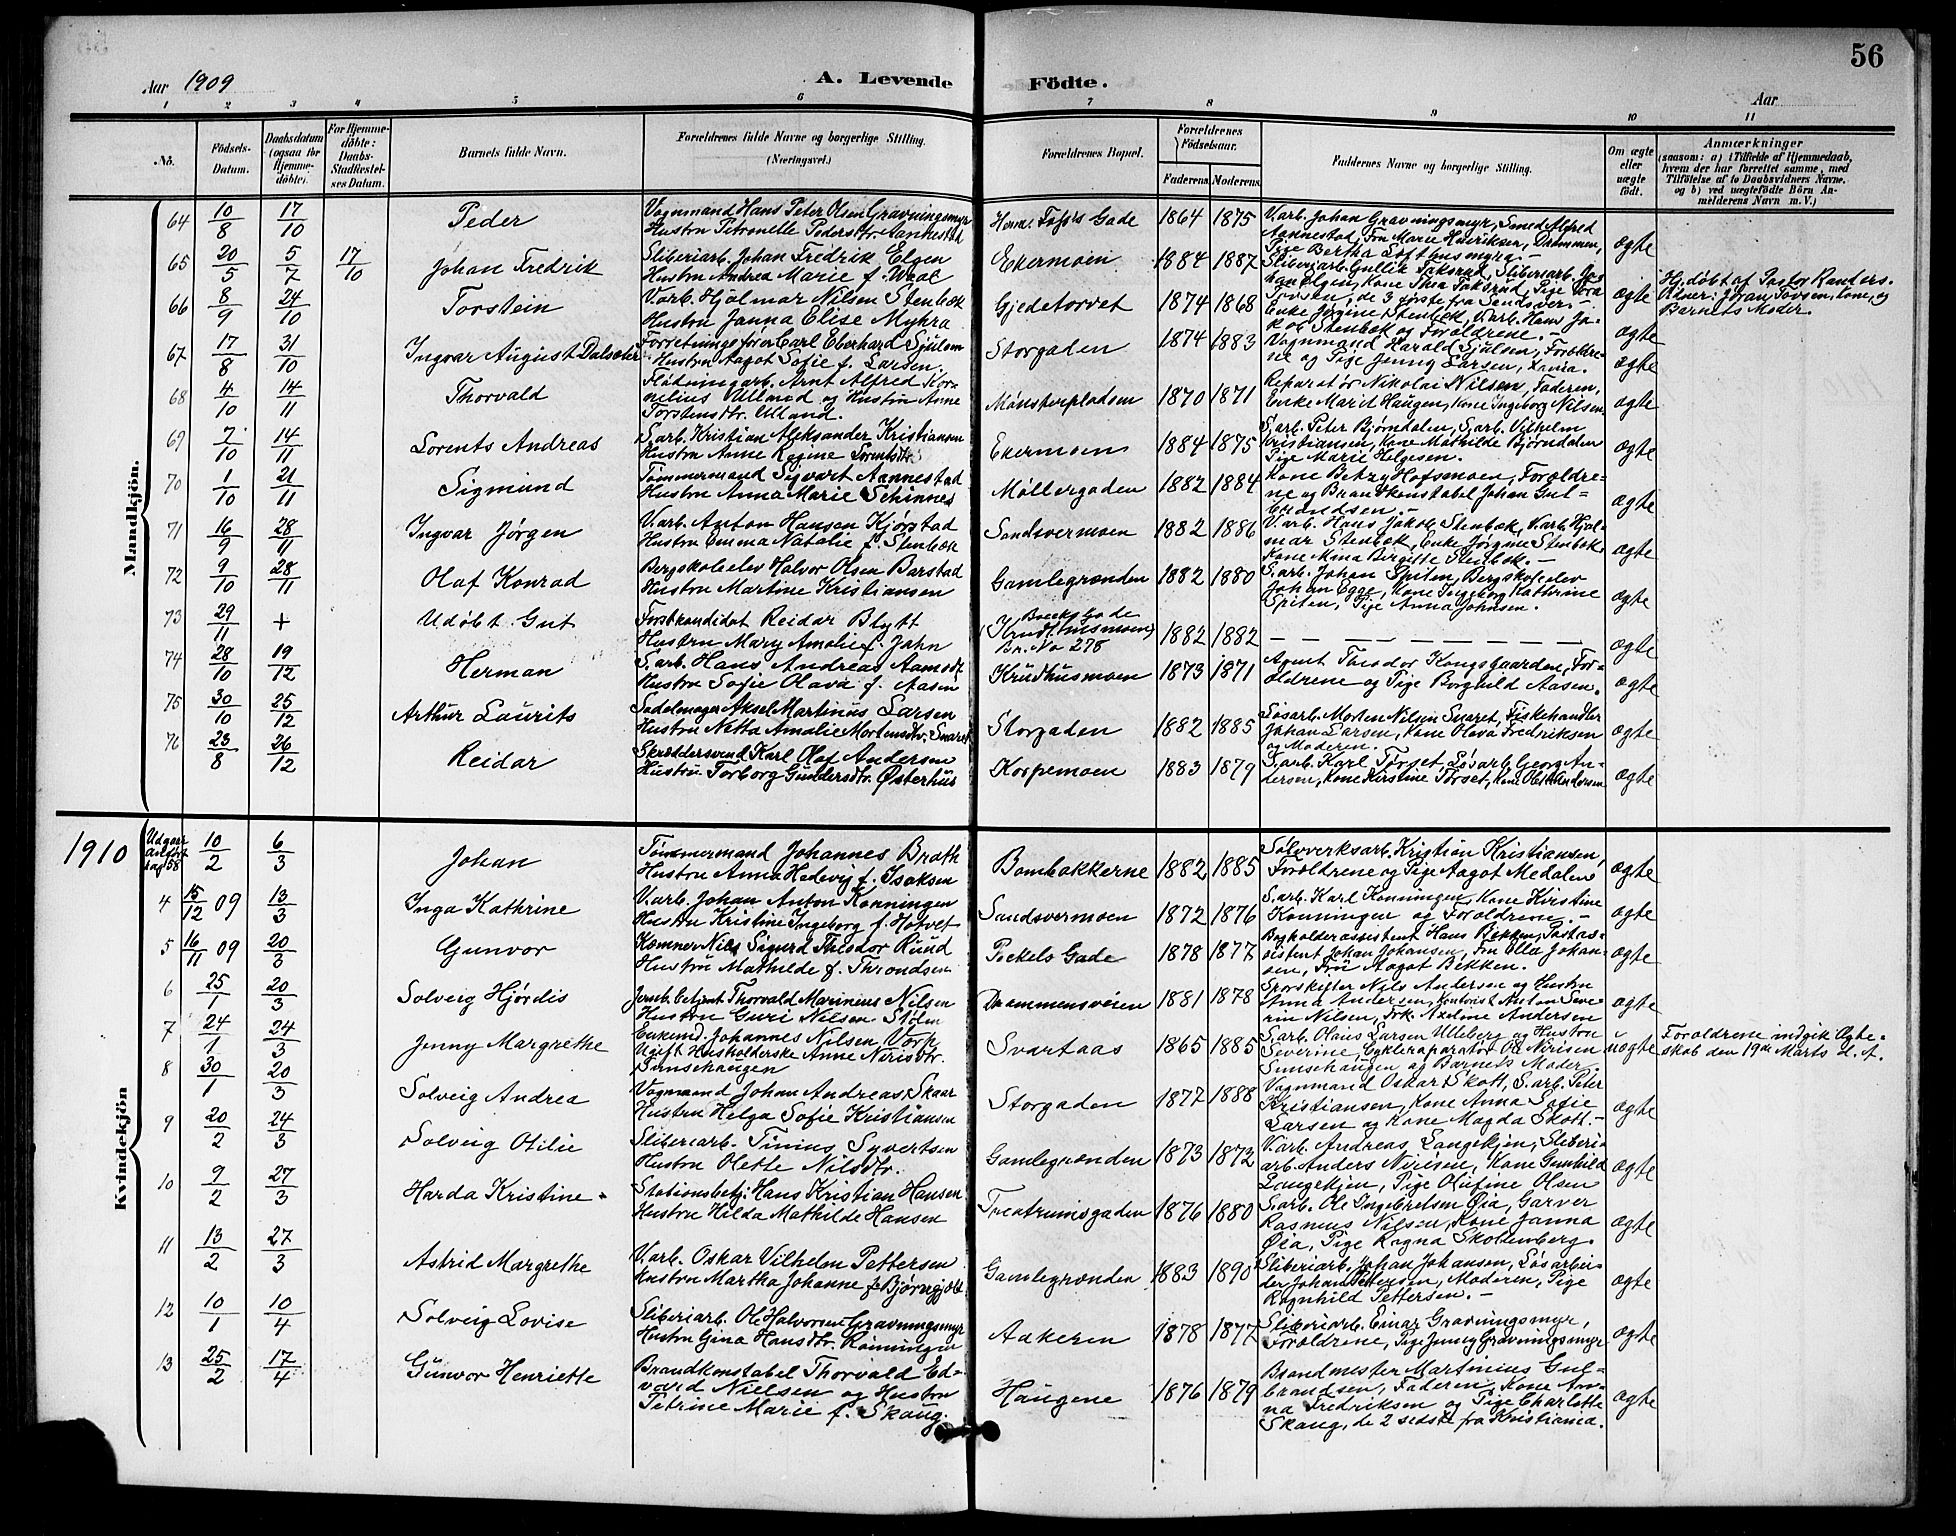 56
Aar 1909
A. Levende Födte.
Aar
1 2 3 4 5 6 7 8 9 10 11
No.
Födsels-Datum.
Daabsdatum (ogsaa for Hjemme-döbte).
For Hjemme-döbte: Daabs-Stadfæstel-ses Datum.
Barnets fulde Navn.
Forældrenes fulde Navne og borgerlige Stilling. (Næringsvei.)
Forældrenes Bopæl.
Forældrenes Födselsaar.
Faderens. Moderens.
Faddernes Navne og borgerlige Stilling.
Om ægte eller uægte födt.
Anmærkninger
(saasom: a) i Tilfælde af Hjemmedaab,
hvem der har forrettet samme, med
Tilföielse af to Daabsvidners Navne.
og b) ved uægtefödte Börn An-
melderens Navn m. V.)
Mandkjön.
64 10/8 17/10 Peder
Vognmand Hans Peter Olsen Gravningsmyr
Hustru Petronelle Pedersdtr. Aannestad
Herm. Foss's Gade 1864 1875
V.arb. Johan Gravningsmyr, Smed Alfred
Aannestad, Fru Marie Henriksen, Drammen,
Pige Bertha Lofthusmyra. –
ægte
65 20/5 5/7 17/10 Johan Fredrik
Sliberiarb. Johan Fredrik Elgen
Hustru Andrea Marie f. Waal
Ekermoen 1884 1887
Sliberiarb. Gullik Taksrud, Sliberiarb. Jo-
han Elgen, Kone Thea Taksrud, Pige Tora
Tovsen, de 3 første fra Sendsver. –
ægte
Hj. døbt af Pastor Randers.
Vidner: Johan Tovsen, Kone, og
Barnets Moder.
66 8/9 24/10 Torstein
V.arb. Hjalmar Nilsen Stenbæk
Hustru Janna Elise Myhra
Gjedetorvet 1874 1868
Enke Jørgine Stenbæk, V.arb. Hans Ja-
kob Stenbæk og Forældrene.
ægte
67 17/8 31/10 Ingvar August Dalseter
Forretningsfører Carl Eberhard Sjulsen
Hustru Aagot Sofie f. Larsen.
Storgaden 1874 1883
Vognmand Harald Sjulsen, Forældre-
ne og Pige Jenny Larsen, Xania.
ægte
68 4/10 14/11 Thorvald
Flødningsarb. Arnt Alfred Kor-
nelius Ulland og Hustru Anne
Torstensdtr. Ulland.
Mønsterpladsen 1870 1871
Reparatør Nikolai Nilsen, Faderen,
Enke Marit Haugen, Kone Ingeborg Nilsen
ægte
69 7/10 14/11 Lorents Andreas
S.arb. Kristian Aleksander Kristiansen
Hustru Anne Regine Lorentsdtr.
Ekermoen 1884 1875
S.arb. Peter Bjørndalen, S.arb. Vilhelm
Kristiansen, Kone Mathilde Bjørndalen
Pige Marie Helgesen.
ægte
70 1/10 21/11 Sigmund
Tømmermand Sigvart Aannestad
Hustru Anna Marie Schinnes
Møllergaden 1882 1884
Kone Betzy Hofsmoen, Forældre-
ne og Brandkonstabel Johan Gul-
brandsen. –
ægte
71 16/9 28/11 Ingvar Jørgen
V.arb. Anton Hansen Kjørstad
Hustru Emma Natalie f. Stenbæk
Sandsvermoen 1882 1886
V.arb. Hans Jakob Stenbæk, V.arb. Hjal-
mar Stenbæk, Enke Jørgine Stenbæk
Kone Mina Birgitte Stenbæk. –
ægte
72 9/10 28/11 Olaf Konrad
Bergskoleelev Halvor Olsen Barstad
Hustru Martine Kristiansen
Gamlegrænden 1882 1880
S.arb. Johan Spiten, Bergskoleelev
Johan Egge, Kone Ingeborg Kathrine
Spiten, Pige Anna Johnsen.
ægte
73 29/11 + Udøbt Gut
Forstkandidat Reidar Blytt
Hustru Mary Amalie f. Jahn
J. Bæcks Gade
(Krudthusmoen)
Br. No 278
1882 1882 – – – – ægte
74 28/10 19/12 Herman
S.arb. Hans Andreas Aamodt
Hustru Sofie Olava f. Aasen
Krudhusmoen 1873 1871
Agent Theodor Kongsgaarden, For-
ældrene og Pige Borghild Aasen.
ægte
75 30/10 25/12 Arthur Laurits
Sadelmager Aksel Martinus Larsen
Hustru Netta Amalie Mortensdtr. Snaret
Storgaden 1882 1885
Løsarb. Morten Nilsen Snaret, Fiskehandler
Johan Larsen, Kone Olava Fredriksen
og Moderen.
ægte
76 23/8 26/12 Reidar
Skræddersvend Karl Olaf Andersen
Hustru Torborg Gundersdtr. Østerhus
Korpemoen 1883 1879
S.arb. Karl Torset, Løsarb. Georg An-
dersen, Kone Kirstine Torset, Kone Olea Andersen
ægte
1910
Kvindekjön
Udgaar anført pag 58 10/2 6/3 Johan
Tømmermand Johannes Brath
Hustru Anna Hedevig f. Isaksen
Bombakkerne 1882 1885
Sølvverksarb. Kristian Kristiansen,
Forældrene og Pige Aagot Medalen
ægte
4 15/12 09 13/3 Inga Kathrine
V.arb. Johan Anton Konningen
Hustru Kristine Ingeborg f. Hotvet
Sandsvermoen 1872 1876
S.arb. Karl Konningen, Kone Kirstine
Konningen og Forældrene. –
ægte
5 16/11 09 20/3 Gunvor
Kæmner Nils Sigurd Theodor Ruud
Hustru Mathilde f. Throndsen
Peckels Gade 1878 1877
Bogholderassistent Hans Bekken, Postas-
sistent Johan Johansen, Fru Olla Johan-
sen, Fru Aagot Bekken.
ægte
6 25/1 20/3 Solveig Hjørdis
Jernb. betjent Thorvald Marinius Nilsen
Hustru Guri Nilsen Stølen
Drammensveien 1881 1878
Sporskifter Nils Andersen og Hustru
Anna Andersen, Kontorist Anton Seve-
rin Nilsen, Frk. Axeline Andersen
ægte
7 24/1 24/3 Jenny Margrethe
Enkemd. Johannes Nilsen Vorp
Ugift Husholderske Anne Nirisdtr.
Simsehaugen
Svartaas 1865 1885
S.arb. Olaus Larsen Ulleberg og Hustru
Severine, Cyklereparatør Ole Nirisen
Simsehaugen og Barnets Moder.
uægte
Forældrene indgik Ægte-
skab den 19de Marts d. A.
8 30/1 20/3 Solveig Andrea
Vognmand Johan Andreas Skaar
Hustru Helga Sofie Kristiansen
Storgaden 1877 1888
Vognmand Oskar Skott, S.arb. Peter
Kristiansen, Kone Anna Sofie
Larsen og Kone Magda Skott. –
ægte
9 20/2 24/3 Solveig Otilie
Sliberiarb. Tinius Syvertsen
Hustru Olette Nilsdtr.
Gamlegrænden 1873 1872
V.arb. Andreas Langekjen, Sliberi-
arb. Anders Nirisen, Kone Gunhild
Langekjen, Pige Olufine Olsen
ægte
10 9/2 27/3 Harda Kristine
Stationsbetj. Hans Kristian Hansen
Hustru Hilda Mathilde Hansen
Theatrumsgaden 1876 1880
S.arb. Ole Ingebretsen Øia, Garver
Rasmus Nilsen, Kone Janna
Øia, Pige Ragna Skollenborg.
ægte
11 13/2 27/3 Astrid Margrethe
V.arb. Oskar Vilhelm Pettersen
Hustru Martha Johanne f. Bjørngjole
Gamlegrænden 1883 1890
Sliberiarb. Johan Johansen, Løsarbei-
der Johan Pettersen, Moderen, Pige
Ragnhild Pettersen. –
ægte
12 10/1 10/4 Solveig Lovise
Sliberiarb. Ole Halvorsen Gravningsmyr
Hustru Gina Hansdtr. Rønningen
Aakeren 1878 1877
Sliberiarb. Einar Gravningsmyr,
Forældrene, Pige Jenny Gravningsmyr
ægte
13 25/2 17/4 Gunvor Henriette
Brandkonstabel Thorvald Ed-
vard Nielsen og Hustru
Petrine Marie f. Skaug.
Haugene 1876 1879
Brandmester Martinius Gul-
brandsen, Faderen, Kone An-
na Fredriksen og Pige Charlotte
Skaug, de 2 sidste fra Kristiania.
ægte